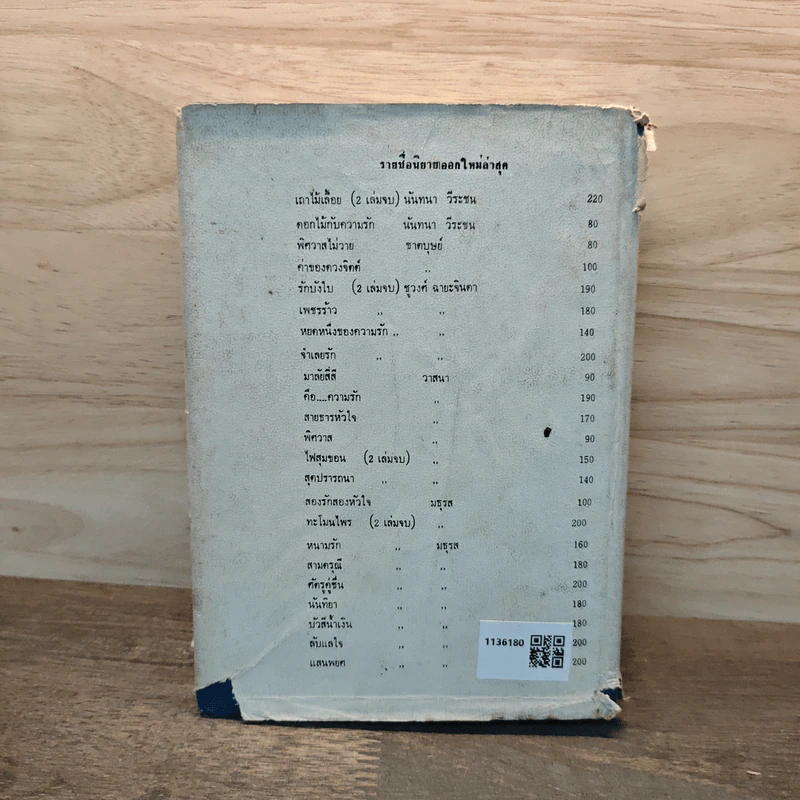 รายชื่อนิยายออกใหม่ล่าสุด
เถาไม้เลื้อย (2 เล่มจบ) นันทนา วีระชน 220
ดอกไม้กับความรัก นันทนา วีระชน 80
พิศวาสไม่วาย ชาตบุษย์ 80
ค่าของดวงจิตต์ ,, 100
รักบังใบ (2 เล่มจบ) ชูวงศ์ ฉายะจินดา 190
เพชรร้าว ,, ,, 180
หยดหนึ่งของความรัก ,, ,, 140
จำเลยรัก ,, ,, 200
มาลัยสี่สี วาสนา 90
คือ....ความรัก ,, 190
สายธารหัวใจ ,, 170
พิศวาส ,, 90
ไฟสุมขอน (2 เล่มจบ) ,, 150
สุดปรารถนา ,, ,, 140
สองรักสองหัวใจ มธุรส 100
ทะโมนไพร (2 เล่มจบ) ,, 200
หนามรัก ,, มธุรส 160
สามดรุณี ,, ,, 180
ศัตรูคู่ชื่น ,, ,, 200
นันทิยา ,, ,, 180
บัวสีน้ำเงิน ,, ,, 180
ลับแลใจ ,, ,, 200
แสนพยศ ,, ,, 200
1136180